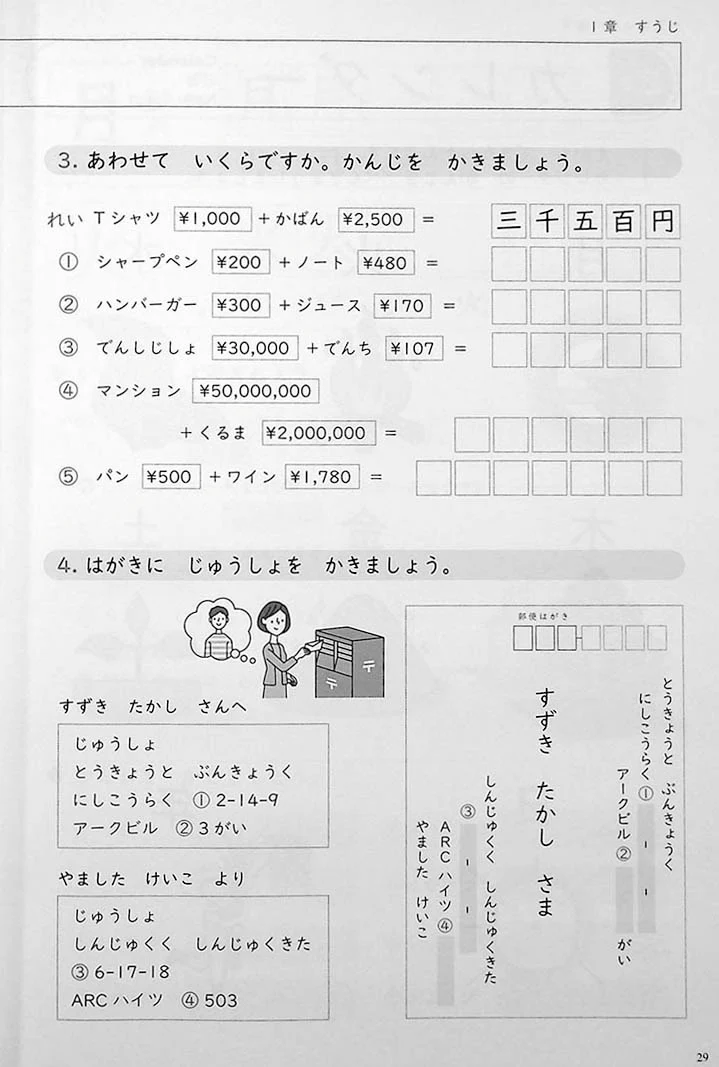 1章 すうじ
3. あわせて いくらですか。かんじを かきましょう。
れい Tシャツ ¥1,000 +かばん ¥2,500 = 三千五百円
① シャープペン ¥200 +ノート ¥480 =
② ハンバーガー ¥300 +ジュース ¥170 =
③ でんしじしょ ¥30,000 +でんち ¥107 =
④ マンション ¥50,000,000
+くるま ¥2,000,000 =
⑤ パン ¥500 +ワイン ¥1,780 =
4. はがきに じゅうしょを かきましょう。
すずき たかし さんへ
じゅうしょ
とうきょうと ぶんきょうく
にしこうらく ①2-14-9
アークビル ②3がい
やました けいこ より
じゅうしょ
しんじゅくく しんじゅくきた
③6-17-18
ARCハイツ ④503
郵便はがき
とうきょうと ぶんきょうく
にしこうらく① - -
アークビル② がい
すずき たかし さま
しんじゅくく しんじゅくきた
③ - -
ARCハイツ④
やました けいこ
29